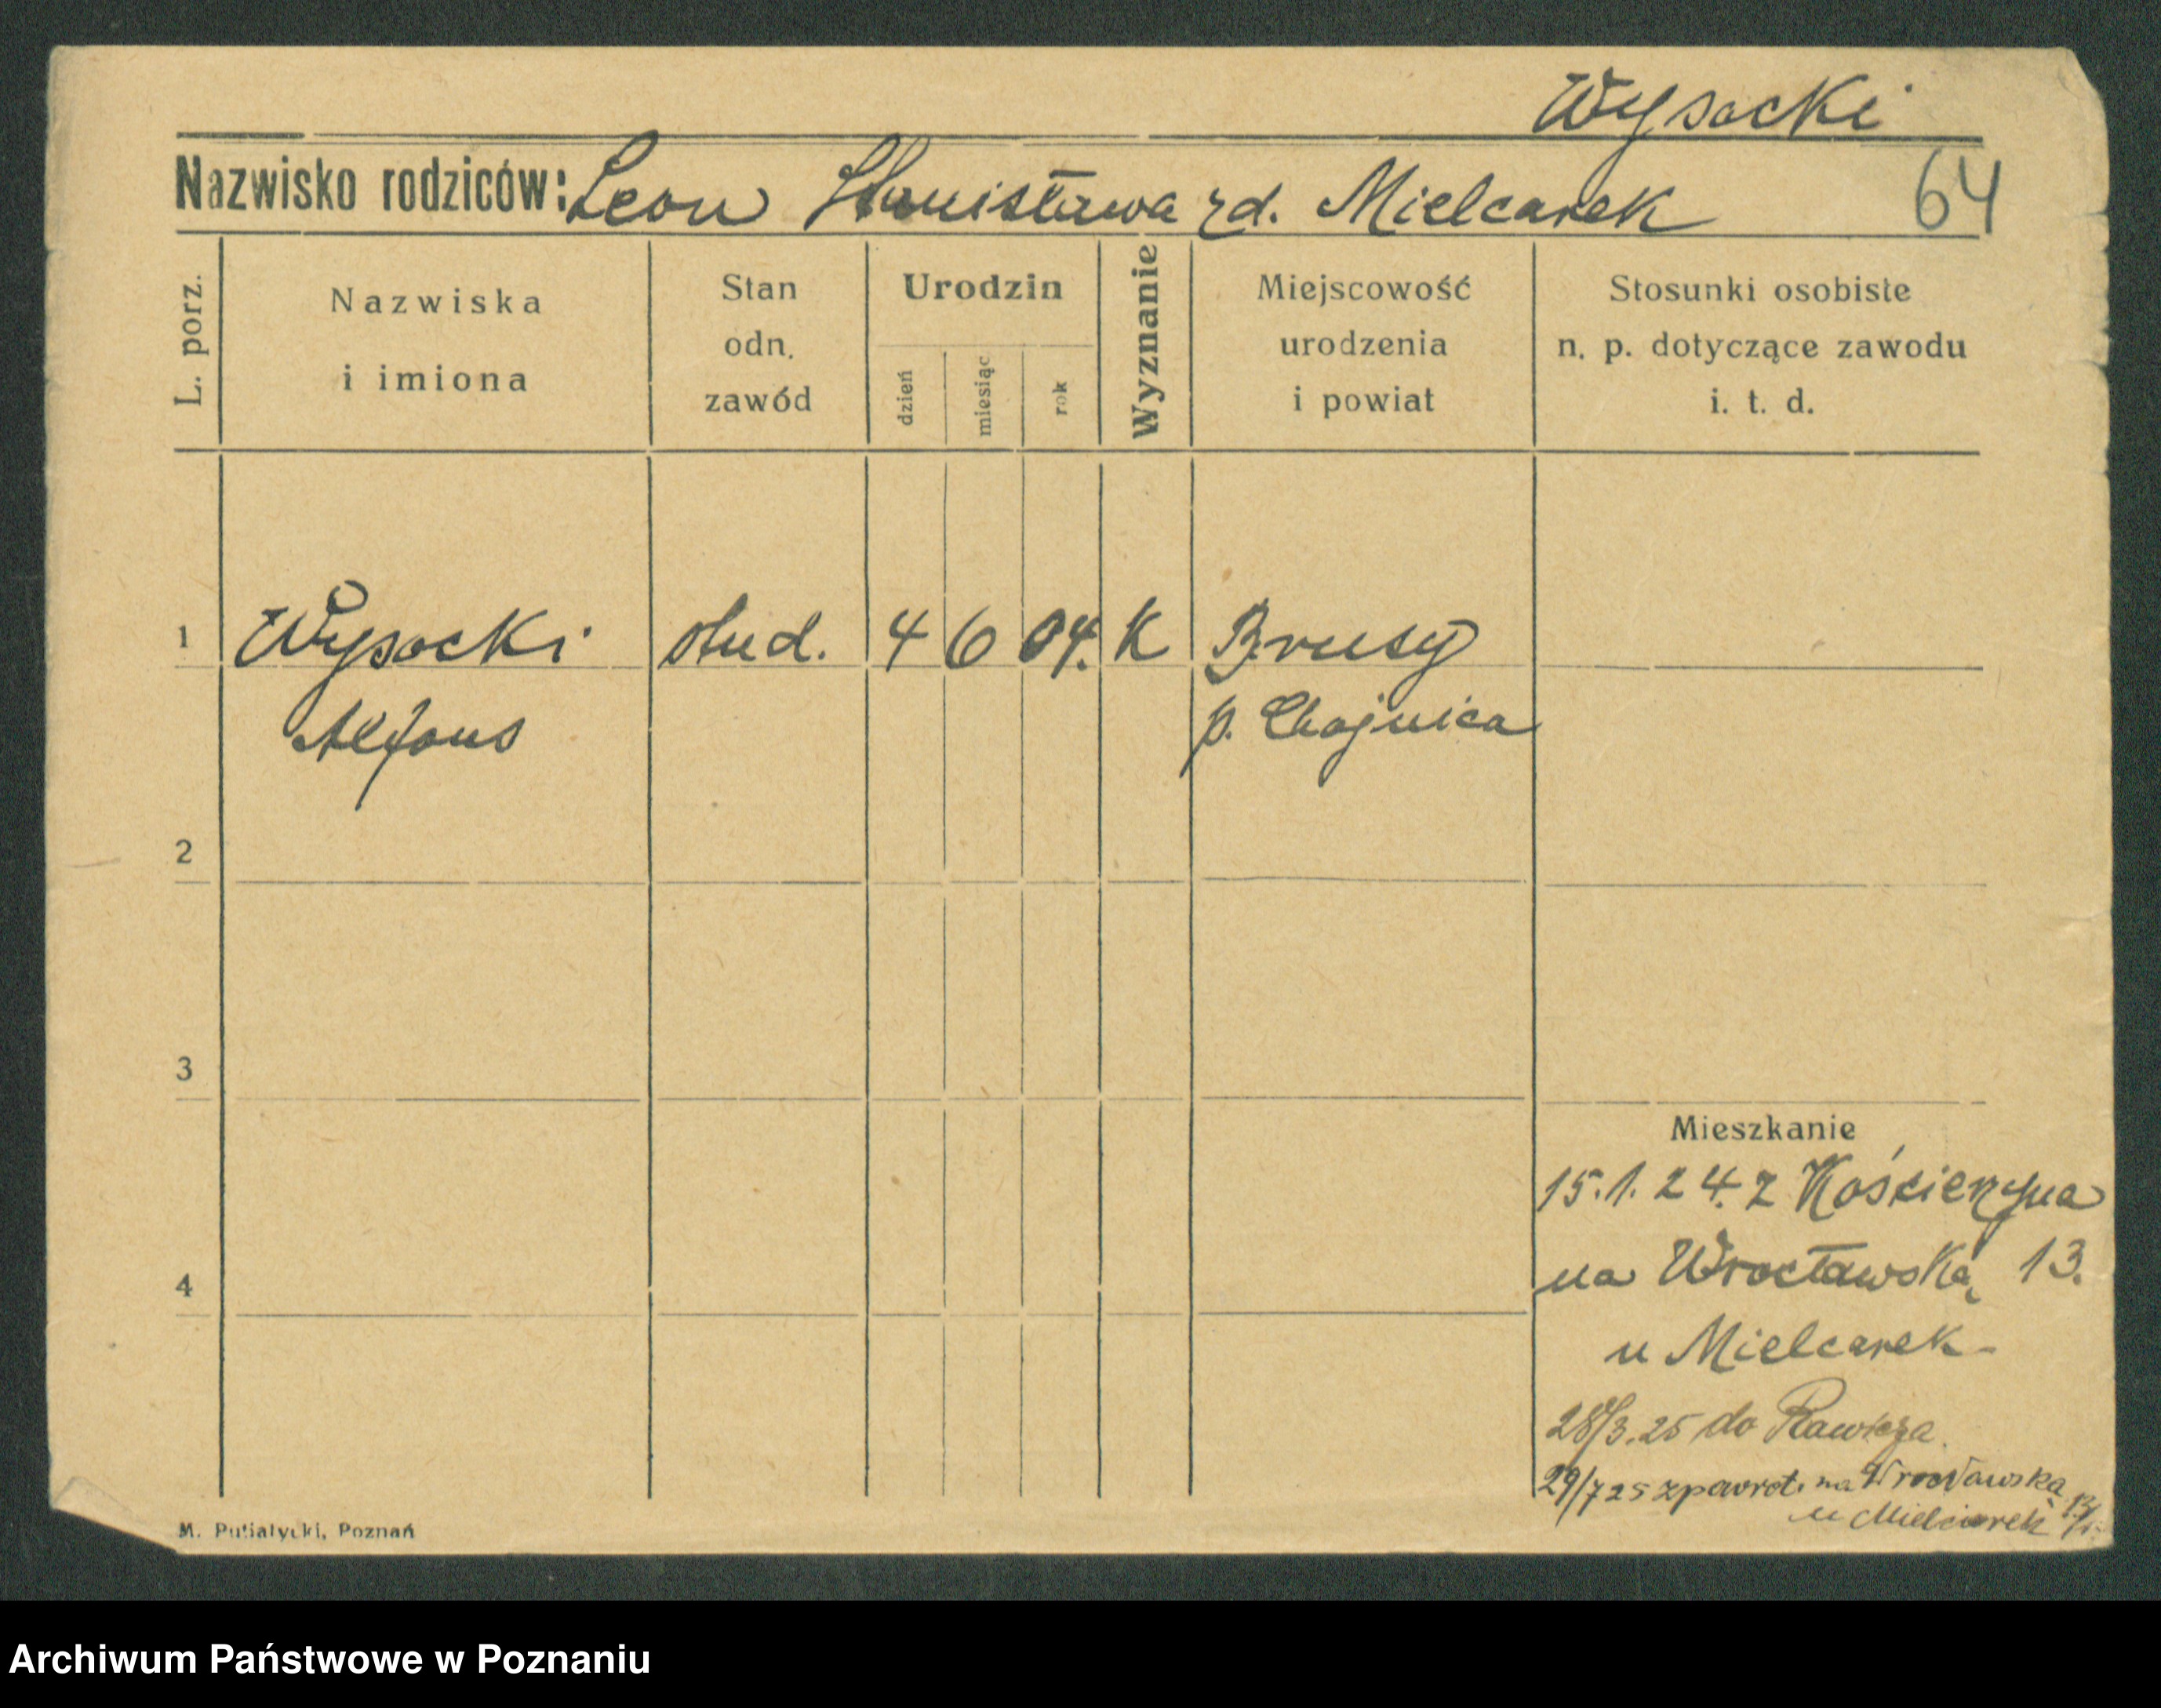 Wysocki
Nazwisko rodziców: Leon Stanisława rd. Mielcarek 64
L. porz.
Nazwiska
i imiona
Stan
odn.
zawód
Urodzin
dzień
miesiąc
rok
Wyznanie
Miejscowość
urodzenia
i powiat
Stosunki osobiste
n. p. dotyczące zawodu
i. t. d.
1 Wysocki stud. 4 6 04. K Brusy
Alfons p. Chojnica
2
3
4
Mieszkanie
15.1.24. z Kościerzyna
na Wrocławską 13.
u Mielcarek
28/3.25 do Rawicza.
29/7 25 zpowrot. na Wrocławska
u Mielcarek
M. Putiatycki, Poznań
Archiwum Państwowe w Poznaniu